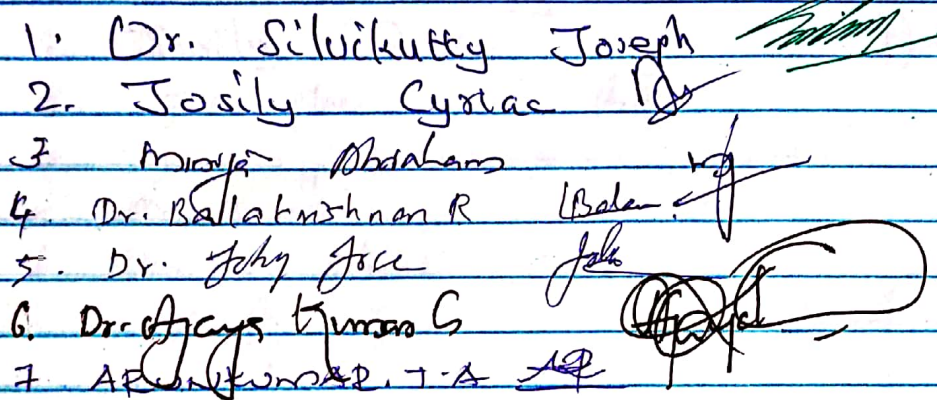 1. Dr. Silvikutty Joseph
2. Josily Cyriac
3 Abraham
4. Dr. Ballakrishnan R Balan
5. Dr. Johy Jose
6. Dr. Ajaya Kumar G
7 ARUNKUMAR. T.A